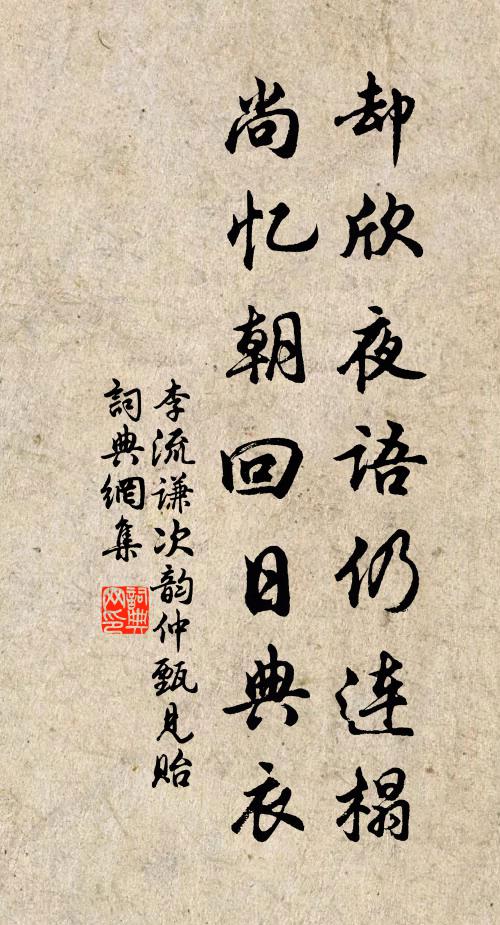 却欣夜语仍连榻
尚忆朝回日典衣
李流谦次韵仲甄见贻
詞典網集
詞典網印